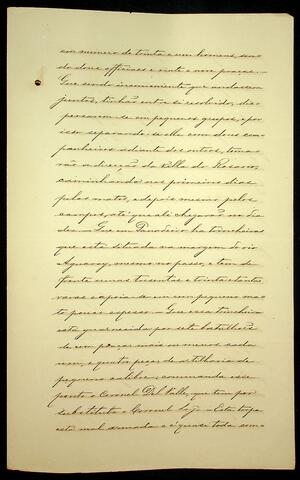 em numero de trinta e um homens, sen-
do dous officiaes e vinte e nove praças.—
Que sendo inconveniente que andassem
juntos, tinhão entre si resolvido, dis-
persarem-se em pequenos grupos, e por
isso separando-se elle com dous com-
panheiros adiante dos outros, toma-
rão a direcção da Villa do Rosario,
caminhando nos primeiros dias
pelos mattos, e depois mesmo pelos
campos, até que ali chegarão no dia
— Que em ha trincheiras
que está situada na margem do rio
Aguaray, mesmo no passo, e tem de
frente umas tresentas e trinta e tantas
varas e apoia-se em um pequeno ma-
to pouco espesso. — Que essa trincheira
está guarnecida por sete batalhões
de cem praças mais ou menos cada
um, e quatro peças de artilharia de
pequeno calibre; commanda esse
ponto o Coronel Del Valle, que tem por
substituto o Coronel — Esta tropa
está mal armada e é quase toda com-